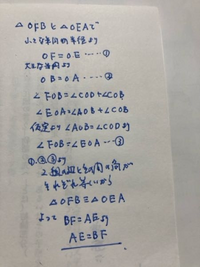 △OFBと△OEAで
小さな半円の半径より
OF=OE ……①
大きな半円より
OB=OA ……②
∠FOB=∠COD+∠COB
∠EOA=∠AOB+∠COB
仮定より∠AOB=∠CODより
∠FOB=∠EOA …③
①,②,③より
2組の辺とその間の角が
それぞれ等しいから
△OFB≡△OEA
よって BF=AEより
AE=BF